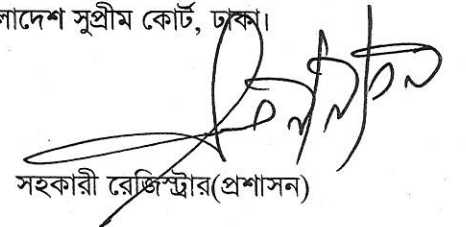 লাদেশ সুপ্রীম কোর্ট, ঢাকা।
সহকারী রেজিস্ট্রার(প্রশাসন)